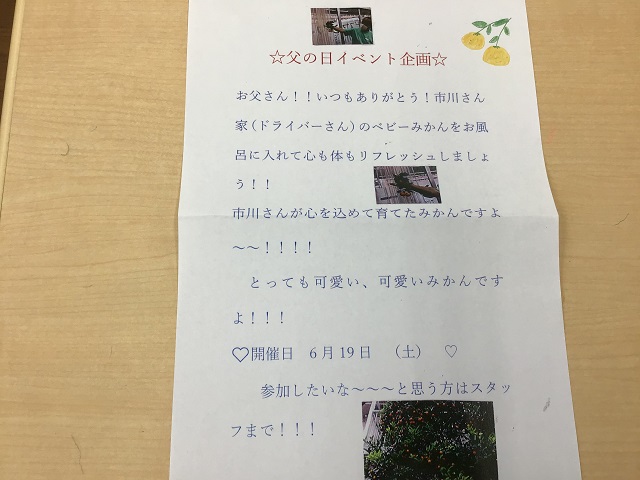 ☆父の日イベント企画☆
お父さん！！いつもありがとう！市川さん
家（ドライバーさん）のベビーみかんをお風
呂に入れて心も体もリフレッシュしましょ
う！！
市川さんが心を込めて育てたみかんですよ
～～！！！！
とっても可愛い、可愛いみかんです
よ！！！
♡開催日　６月19日　（土）　♡
参加したいな～～～と思う方はスタッ
フまで！！！